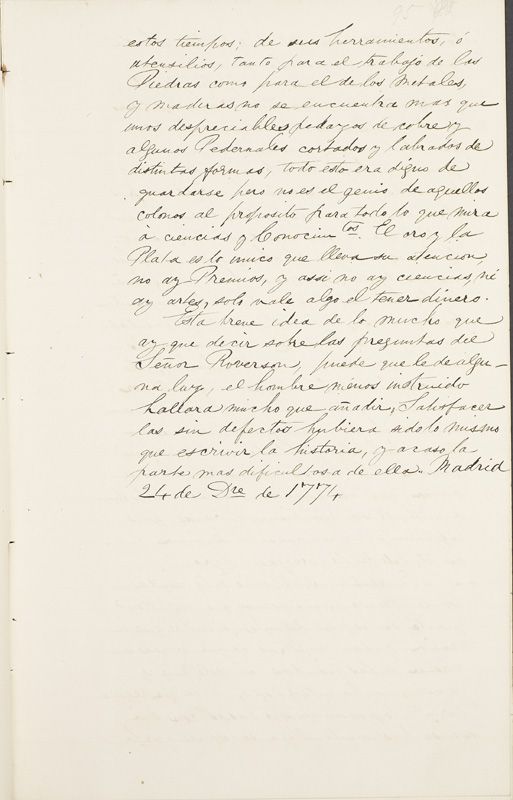 estos tiempos; de sus herramientos, ó
utensilios, tanto para el trabajo de las
Piedras como para el de los Metales,
y maderas, no se encuentra mas que
unos despreciables pedazos de cobre y
algunos Pedernales cortados y labrados de
distintas formas, todo esto era digno de
guardarse pero no es el genio de aquellos
colonos al proposito para todo lo que mira
à ciencias y Conocimtos. El oro y la
Plata es lo unico que lleva su atencion,
no ay Premios, y assi no ay ciencias, ni
ay artes, solo vale algo el tener dinero.
Esta breve idea de lo mucho que
ay que decir sobre las preguntas del
Señor Roverson, puede que le de algu-
na luz, el hombre menos instruido
hallara mucho que añadir, Satisfacer
las sin defecto hubiera sido lo mismo
que escrivir la historia, y acaso la
parte mas dificultosa de ella. Madrid
24 de Dre de 1774